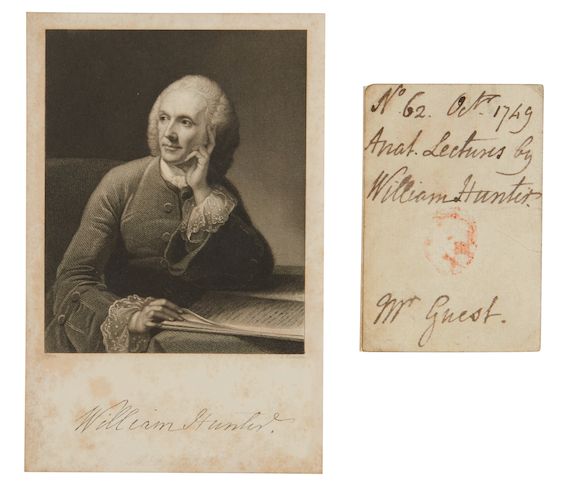 William Hunter.
No 62. Octr. 1749
Anat. Lectures by
William Hunter.
Mr Guest.